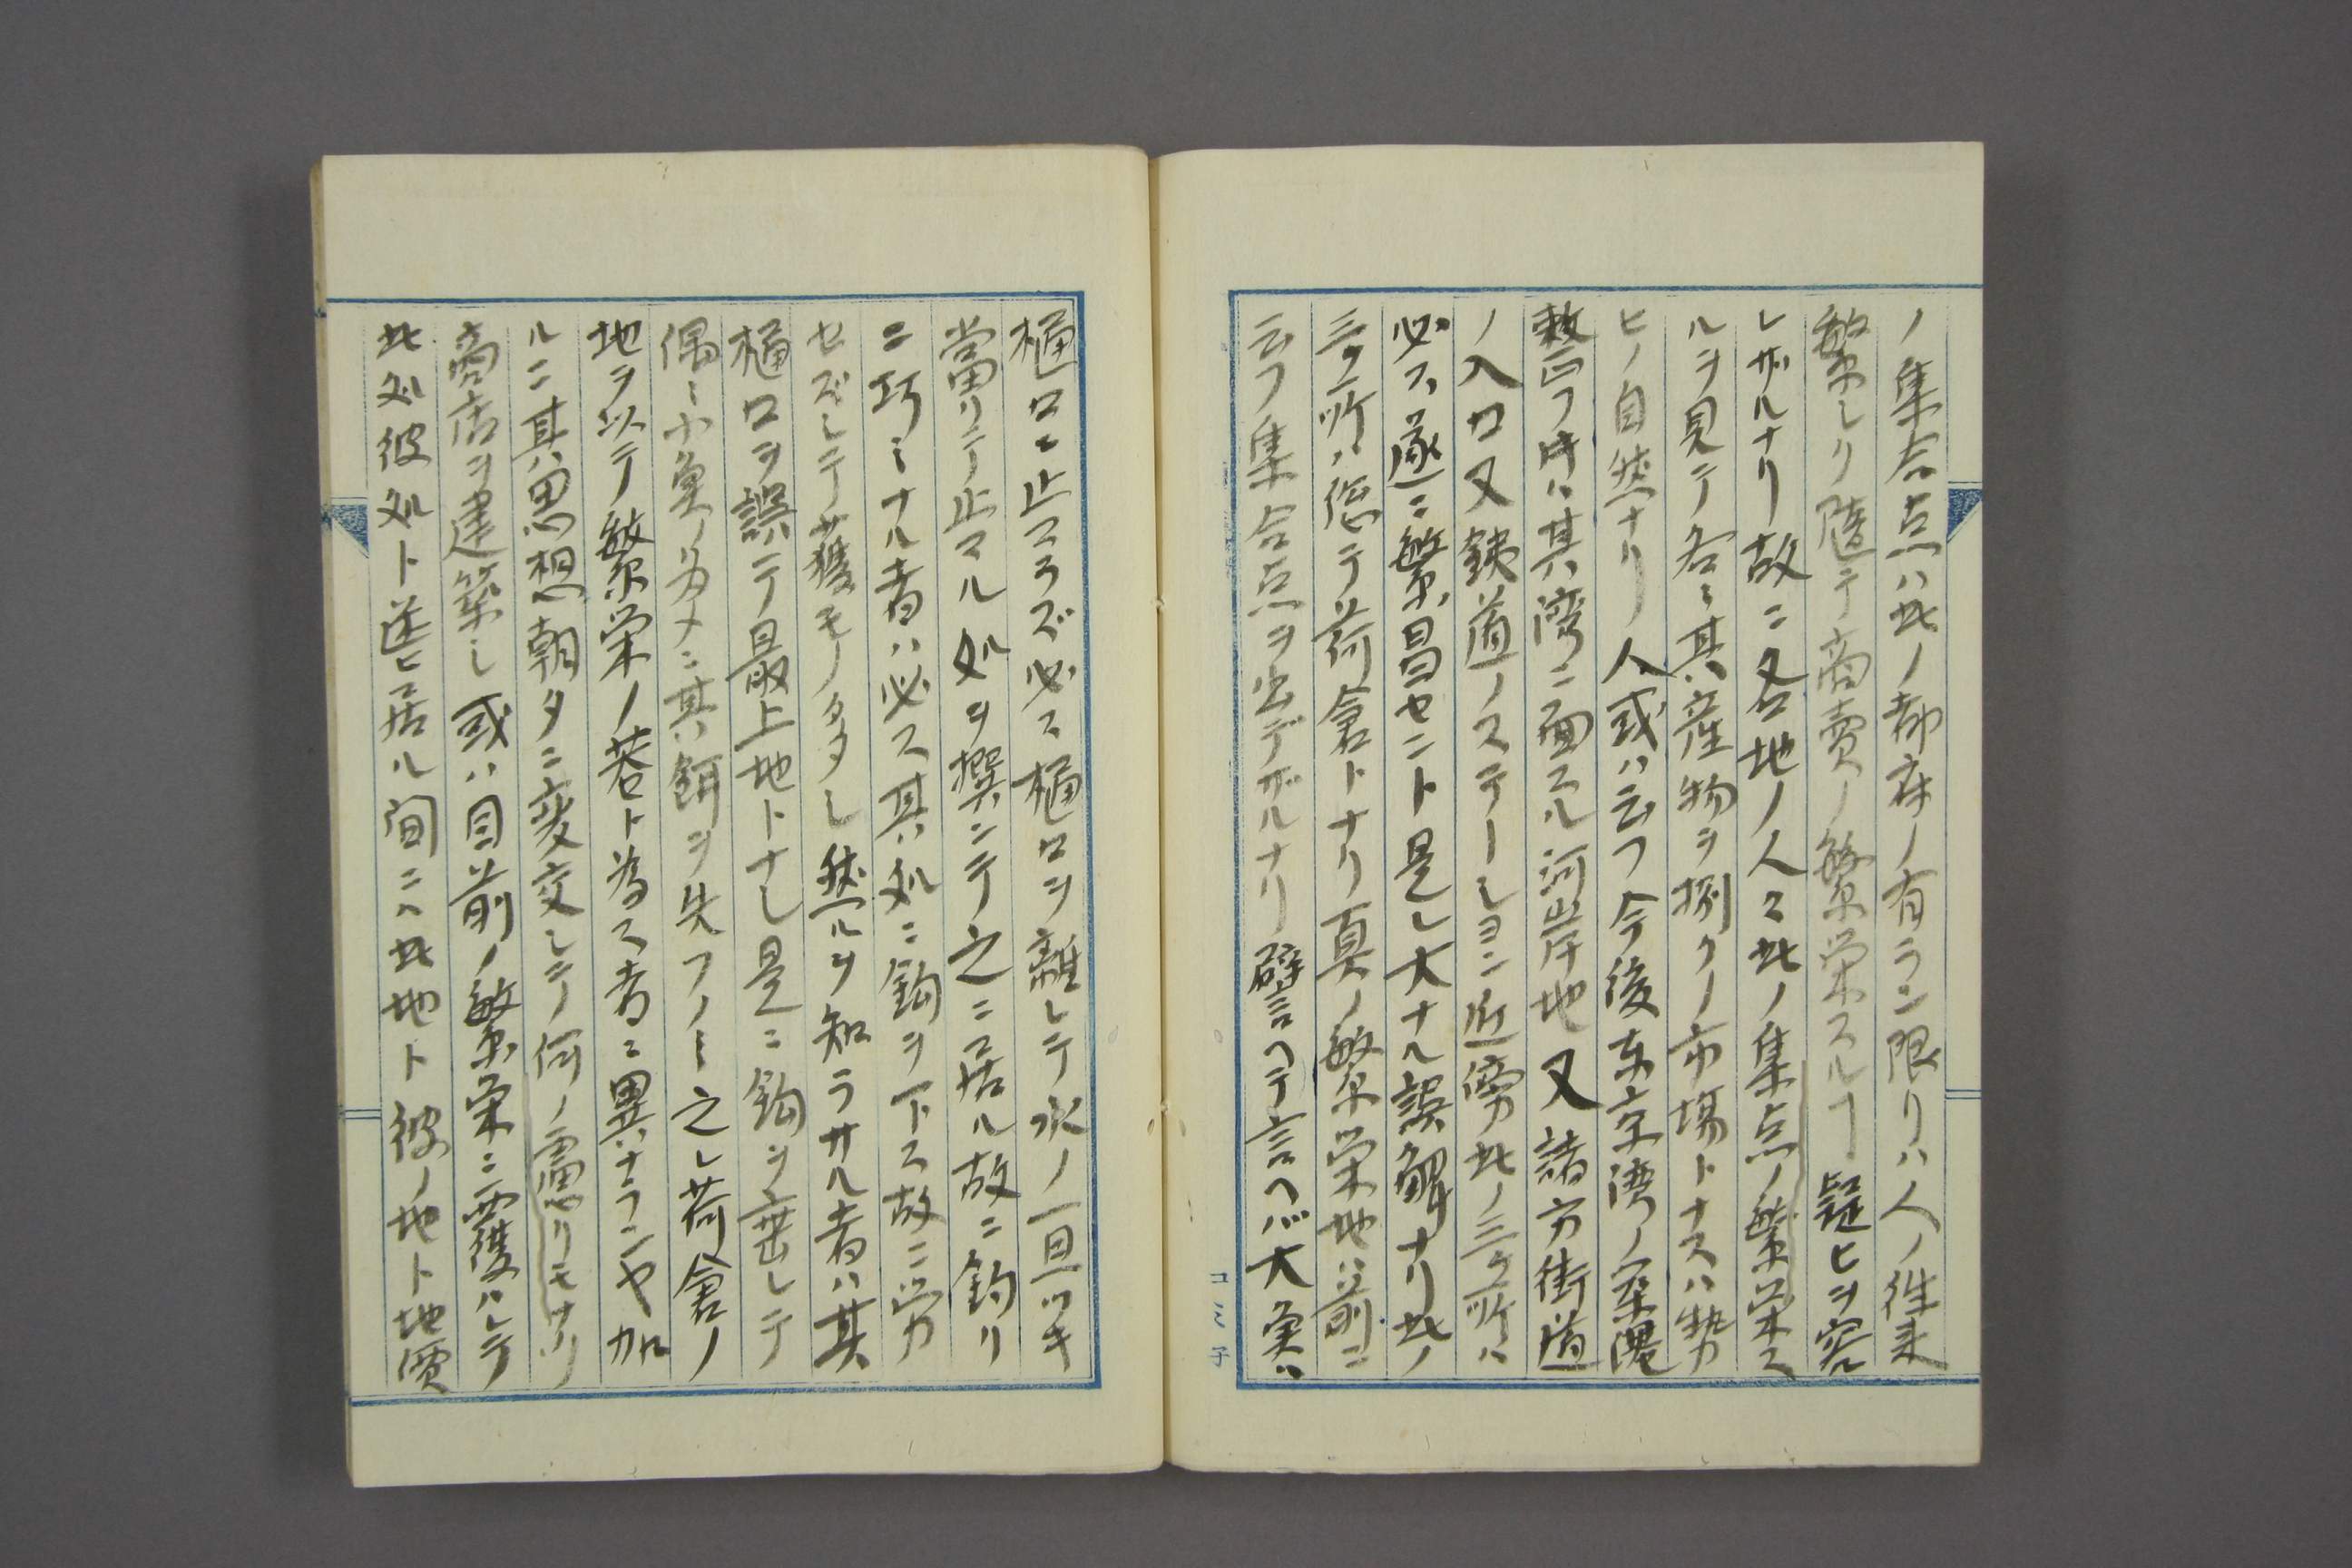 ノ集合点ハ此ノ都府ノ有ラン限リハ人ノ往来
繁シク隨テ商賣ノ繁栄スルヿ疑ヒヲ容
レザルナリ故ニ各地ノ人々此ノ集点ノ繁栄ス
ルヲ見テ各〻其産物ヲ捌クノ市場トナスハ勢
ヒノ自然ナリ人或ハ云フ今後東京湾ノ築港
整フ時ハ其湾ニ面スル河岸地又諸方街道
ノ入口又鉄道ノステーシヨン近傍此ノ三ケ所ハ
必ス遂ニ繁昌セント是レ大ナル誤解ナリ此ノ
三ケ所ハ總テ荷倉トナリ真ノ繁栄地ハ前ニ
云フ集合点ヲ出デザルナリ譬ヘテ言ヘバ大魚ハ
樋口ニ止マラズ必ス樋口ヲ離レテ水ノ一旦ツキ
當リテ止マル処ヲ撰ンテ之ニ居ル故ニ釣リ
ニ巧ミナル者ハ必ス其処ニ鈎ヲ下ス故ニ労
セズシテ獲モノ多シ然ルヲ知ラサル者ハ其
樋口ヲ誤テ最上地トナシ是ニ鈎ヲ垂レテ
偶〻小魚ノ為メニ其餌ヲ失フノミ之レ荷倉ノ
地ヲ以テ繁栄ノ者ト為ス者ニ異ナランヤ加
ルニ其思想朝夕ニ変交シテ何ノ慮リモナク
商店ヲ建築シ或ハ目前ノ繁栄ニ覆ハレテ
此処彼処ト迷ヒ居ル間ニハ此地ト彼ノ地ト地價
コミ子